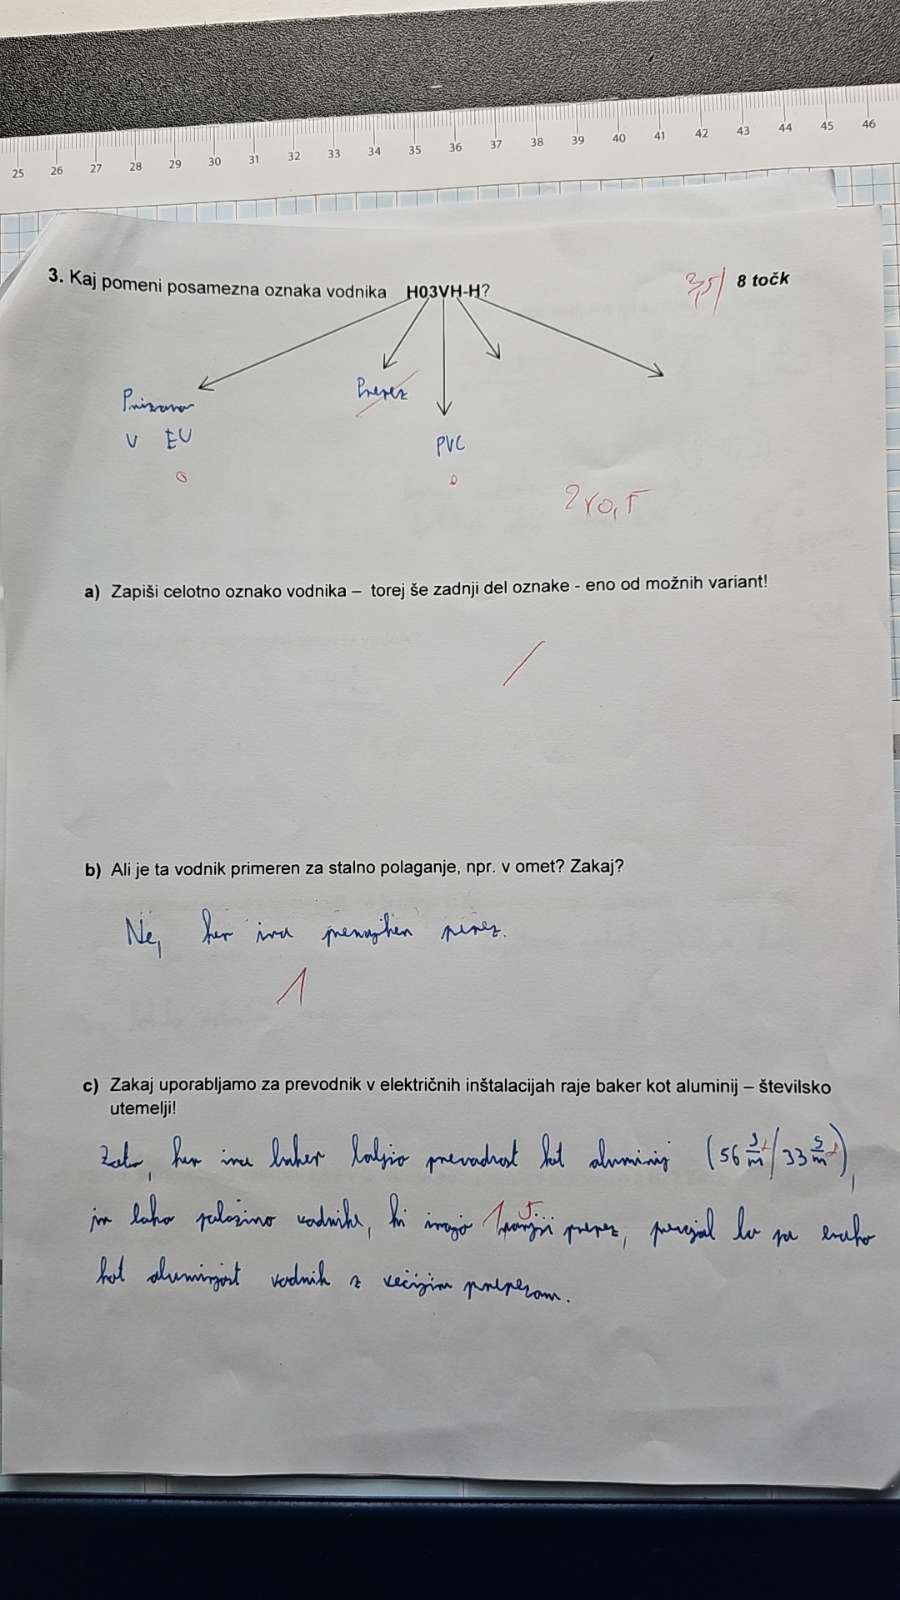 25 26 27 28 29 30 31 32 33 34 35 36 37 38 39 40 41 42 43 44 45 46
3. Kaj pomeni posamezna oznaka vodnika H03VH-H?
3,5/ 8 točk
Priznana
v EU
Prerez
PVC
2x0,5
a) Zapiši celotno oznako vodnika – torej še zadnji del oznake - eno od možnih variant!
b) Ali je ta vodnik primeren za stalno polaganje, npr. v omet? Zakaj?
Ne, ker ima premajhen prerez.
1
c) Zakaj uporabljamo za prevodnik v električnih inštalacijah raje baker kot aluminij – številsko
utemelji!
Zato, ker ima baker boljšo prevodnost kot aluminij (56 S/m / 33 S/m),
in lahko položimo vodnike, ki imajo manjši prerez, prevajal bo pa enako
1,5
kot aluminijast vodnik z večjim prerezom.